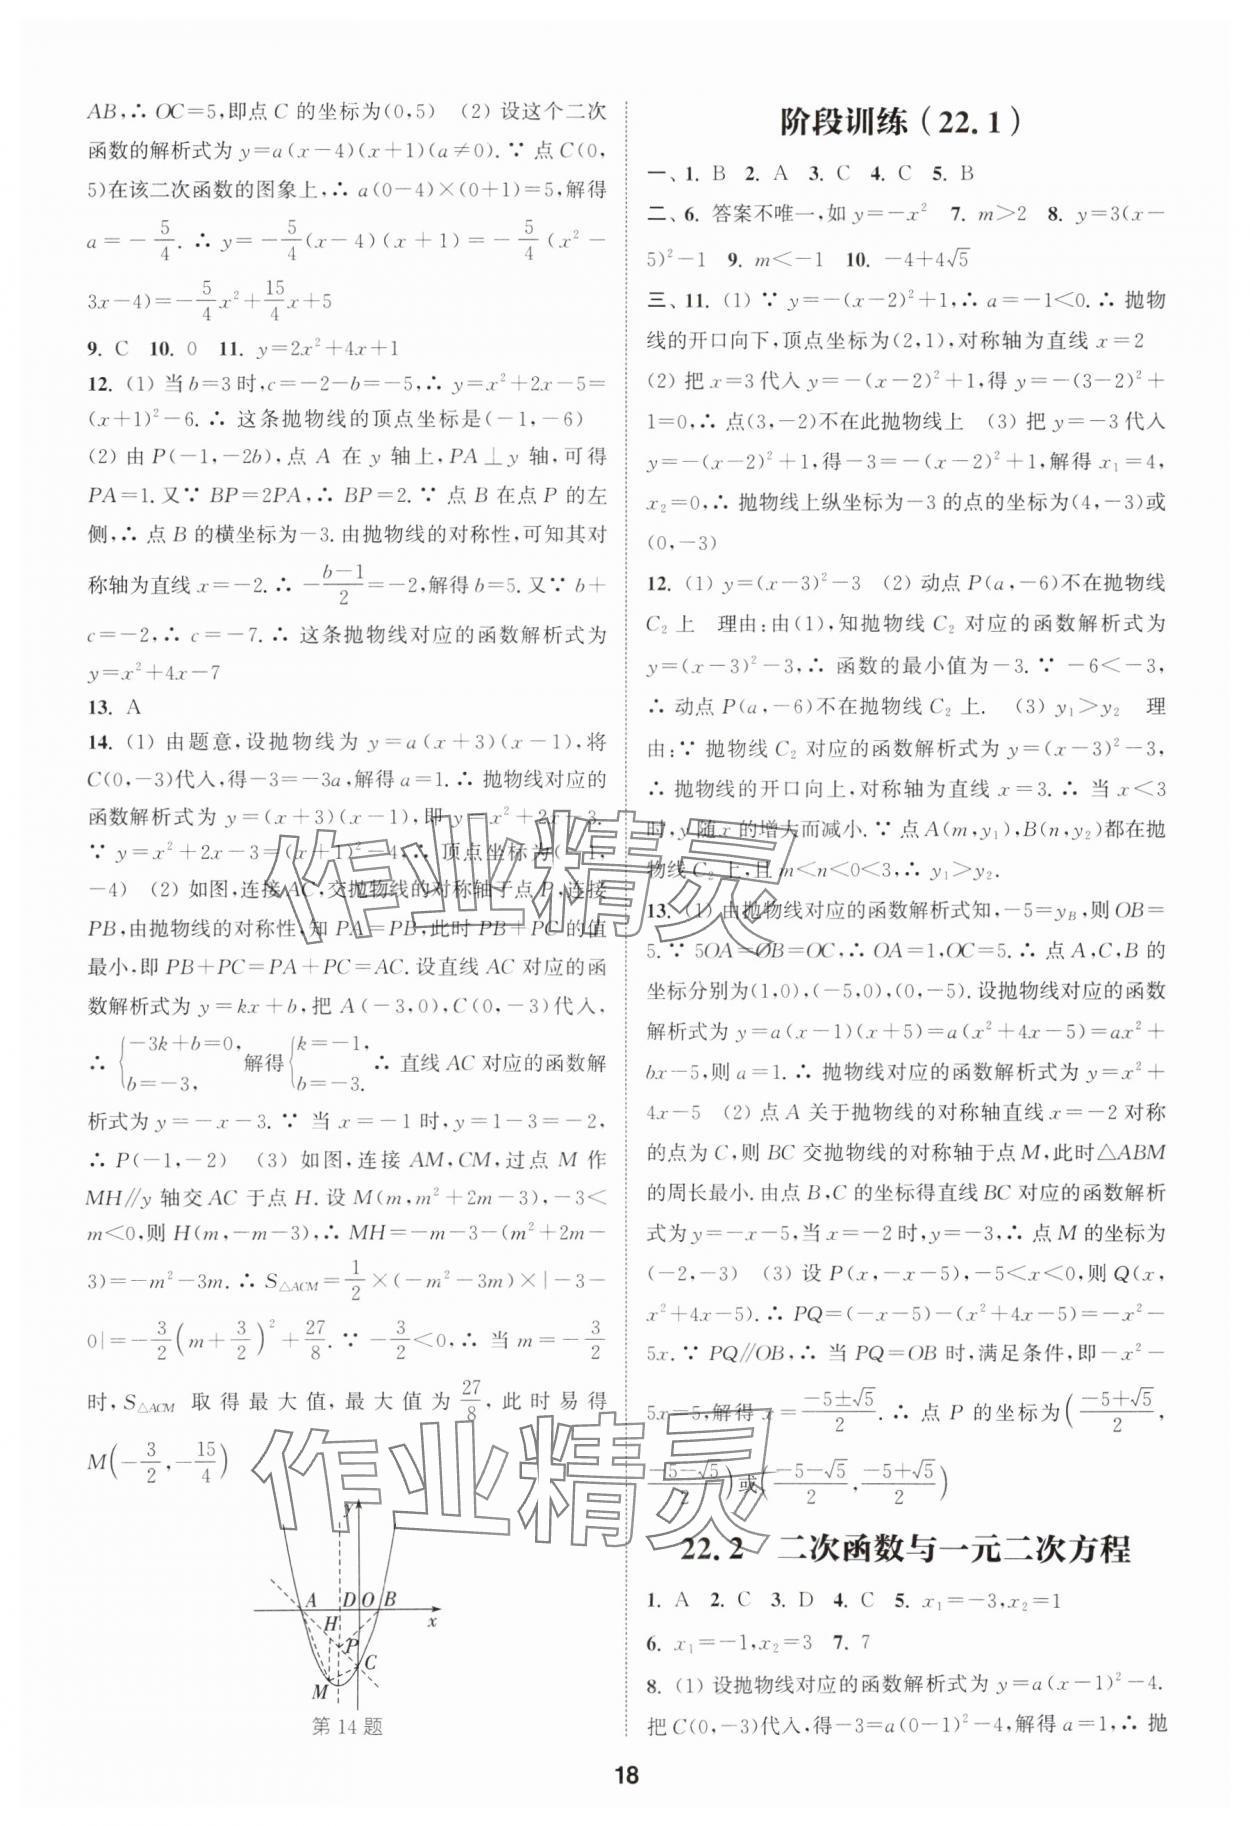 AB,∴ OC=5,即点 C 的坐标为(0,5) (2) 设这个二次
函数的解析式为 y=a(x-4)(x+1)(a≠0).∵ 点 C(0,
5)在该二次函数的图象上,∴ a(0-4)×(0+1)=5,解得
a=-5/4.∴ y=-5/4(x-4)(x+1)=-5/4(x²-
3x-4)=-5/4x²+15/4x+5
9. C 10. 0 11. y=2x²+4x+1
12. (1) 当 b=3 时,c=-2-b=-5,∴ y=x²+2x-5=
(x+1)²-6.∴ 这条抛物线的顶点坐标是(-1,-6)
(2) 由 P(-1,-2b),点 A 在 y 轴上,PA⊥y 轴,可得
PA=1.又∵ BP=2PA,∴ BP=2.∵ 点 B 在点 P 的左
侧,∴ 点 B 的横坐标为-3.由抛物线的对称性,可知其对
称轴为直线 x=-2.∴ -(b-1)/2=-2,解得 b=5.又∵ b+
c=-2,∴ c=-7.∴ 这条抛物线对应的函数解析式为
y=x²+4x-7
13. A
14. (1) 由题意,设抛物线为 y=a(x+3)(x-1),将
C(0,-3)代入,得-3=-3a,解得 a=1.∴ 抛物线对应的
函数解析式为 y=(x+3)(x-1),即 y=x²+2x-3.
∵ y=x²+2x-3=(x+1)²-4,∴ 顶点坐标为(-1,
-4) (2) 如图,连接 AC,交抛物线的对称轴于点 P,连接
PB,由抛物线的对称性,知 PA=PB,此时 PB+PC 的值
最小,即 PB+PC=PA+PC=AC.设直线 AC 对应的函
数解析式为 y=kx+b,把 A(-3,0),C(0,-3)代入,
∴ {-3k+b=0, b=-3, 解得 {k=-1, b=-3. ∴ 直线 AC 对应的函数解
析式为 y=-x-3.∵ 当 x=-1 时,y=1-3=-2,
∴ P(-1,-2) (3) 如图,连接 AM,CM,过点 M 作
MH∥y 轴交 AC 于点 H.设 M(m,m²+2m-3),-3<
m<0,则 H(m,-m-3),∴ MH=-m-3-(m²+2m-
3)=-m²-3m.∴ S△ACM=1/2×(-m²-3m)×|-3-
0|=-3/2(m+3/2)²+27/8.∵ -3/2<0,∴ 当 m=-3/2
时,S△ACM 取得最大值,最大值为27/8,此时易得
M(-3/2,-15/4)
y
A D O B
x
H
P
C
M
第 14 题
阶段训练(22.1)
一、1. B 2. A 3. C 4. C 5. B
二、6. 答案不唯一,如 y=-x² 7. m>2 8. y=3(x-
5)²-1 9. m<-1 10. -4+4√5
三、11. (1) ∵ y=-(x-2)²+1,∴ a=-1<0.∴ 抛物
线的开口向下,顶点坐标为(2,1),对称轴为直线 x=2
(2) 把 x=3 代入 y=-(x-2)²+1,得 y=-(3-2)²+
1=0,∴ 点(3,-2)不在此抛物线上 (3) 把 y=-3 代入
y=-(x-2)²+1,得-3=-(x-2)²+1,解得 x₁=4,
x₂=0,∴ 抛物线上纵坐标为-3 的点的坐标为(4,-3)或
(0,-3)
12. (1) y=(x-3)²-3 (2) 动点 P(a,-6)不在抛物线
C₂ 上 理由:由(1),知抛物线 C₂ 对应的函数解析式为
y=(x-3)²-3,∴ 函数的最小值为-3.∵ -6<-3,
∴ 动点 P(a,-6)不在抛物线 C₂ 上. (3) y₁>y₂ 理
由:∵ 抛物线 C₂ 对应的函数解析式为 y=(x-3)²-3,
∴ 抛物线的开口向上,对称轴为直线 x=3.∴ 当 x<3
时,y 随 x 的增大而减小.∵ 点 A(m,y₁),B(n,y₂)都在抛
物线 C₂ 上,且 m<n<0<3,∴ y₁>y₂.
13. (1) 由抛物线对应的函数解析式知,-5=yB,则 OB=
5.∵ 5OA=OB=OC,∴ OA=1,OC=5.∴ 点 A,C,B 的
坐标分别为(1,0),(-5,0),(0,-5).设抛物线对应的函数
解析式为 y=a(x-1)(x+5)=a(x²+4x-5)=ax²+
bx-5,则 a=1.∴ 抛物线对应的函数解析式为 y=x²+
4x-5 (2) 点 A 关于抛物线的对称轴直线 x=-2 对称
的点为 C,则 BC 交抛物线的对称轴于点 M,此时△ABM
的周长最小.由点 B,C 的坐标得直线 BC 对应的函数解析
式为 y=-x-5,当 x=-2 时,y=-3,∴ 点 M 的坐标为
(-2,-3) (3) 设 P(x,-x-5),-5<x<0,则 Q(x,
x²+4x-5).∴ PQ=(-x-5)-(x²+4x-5)=-x²-
5x.∵ PQ∥OB,∴ 当 PQ=OB 时,满足条件,即-x²-
5x=5,解得 x=(-5±√5)/2.∴ 点 P 的坐标为((-5+√5)/2,
(-5-√5)/2)或((-5-√5)/2,(-5+√5)/2)
22.2 二次函数与一元二次方程
1. A 2. C 3. D 4. C 5. x₁=-3,x₂=1
6. x₁=-1,x₂=3 7. 7
8. (1) 设抛物线对应的函数解析式为 y=a(x-1)²-4.
把 C(0,-3)代入,得-3=a(0-1)²-4,解得 a=1,∴ 抛
18
作业精灵
作业精灵